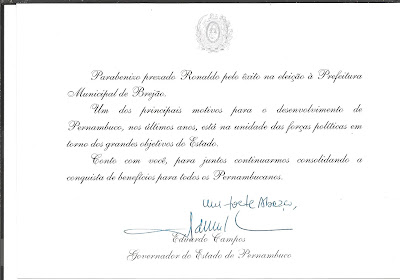 Parabenizo prezado Ronaldo pelo êxito na eleição à Prefeitura
Municipal de Brejão.
Um dos principais motivos para o desenvolvimento de
Pernambuco, nos últimos anos, está na unidade das forças políticas em
torno dos grandes objetivos do Estado.
Conto com você, para juntos continuarmos consolidando a
conquista de benefícios para todos os Pernambucanos.
Um forte Abraço,
Eduardo Campos
Governador do Estado de Pernambuco